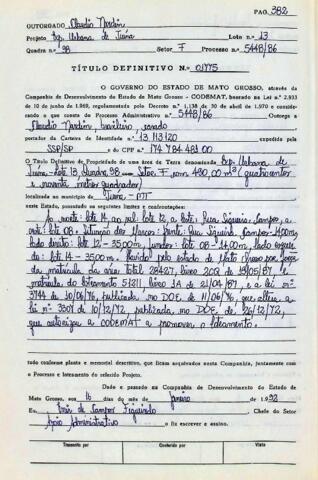 PAG. 382
OUTORGADO Claudio Nardin
Projeto Exp. Urbana de Juína Lote n.º 13
Quadra n.º 98 Setor F Processo n.º 5448/86
TÍTULO DEFINITIVO N.º 01775
O GOVERNO DO ESTADO DE MATO GROSSO, através da
Companhia de Desenvolvimento do Estado de Mato Grosso - CODEMAT, baseado na Lei n.º 2.933
de 10 de junho de 1969, regulamentada pelo Decreto n.º 1.138 de 30 de abril de 1970 e considerando
o que consta do Processo Administrativo n.º 5448/86 Outorga a
Claudio Nardin, brasileiro, casado
portador da Carteira de Identidade n.º 13.113.120 expedida pela
SSP/SP do CPF n.º 174.784.481-00
O Título Definitivo de Propriedade de uma área de Terra denominada Exp. Urbana de
Juína - lote 13, quadra 98 - Setor F com 490,00 m² (quatrocentos
e noventa metros quadrados)
localizada no município de Juína - MT
neste Estado, possuindo os seguintes limites e confrontações:
Ao norte: lote 14 ao sul: lote 12, a leste: Rua Siqueira Campos, a
oeste: lote 08 - frente: Rua Siqueira Campos - 14,00m,
lado direito: lote 12 - 35,00m, fundos: lote 08 - 14,00m, lado esquer-
do: lote 14 - 35,00m. Havido pelo estado de Mato Grosso por força
da matrícula da área total 28427, livro 2CQ de 19/05/87, e
matrícula do loteamento 51211 livro 1A de 21/04/87, e a lei nº
3744 de 10/06/76, publicada no DOE de 11/06/76, que altera a
lei nº 3307 de 10/12/72, publicada no DOE de 26/12/72,
que autoriza a CODEMAT a promover o loteamento.
tudo conforme planta e memorial descritivo, que ficam arquivados nesta Companhia, juntamente com
o Processo e loteamento do referido Projeto.
Dado e passado na Companhia de Desenvolvimento do Estado de
Mato Grosso, aos 16 dias do mês de janeiro de 1992
Eu, de Campos Figueiredo Chefe do Setor
Apoio Administrativo o fiz escrever e assino.
Transcrito por Conferido por Visto